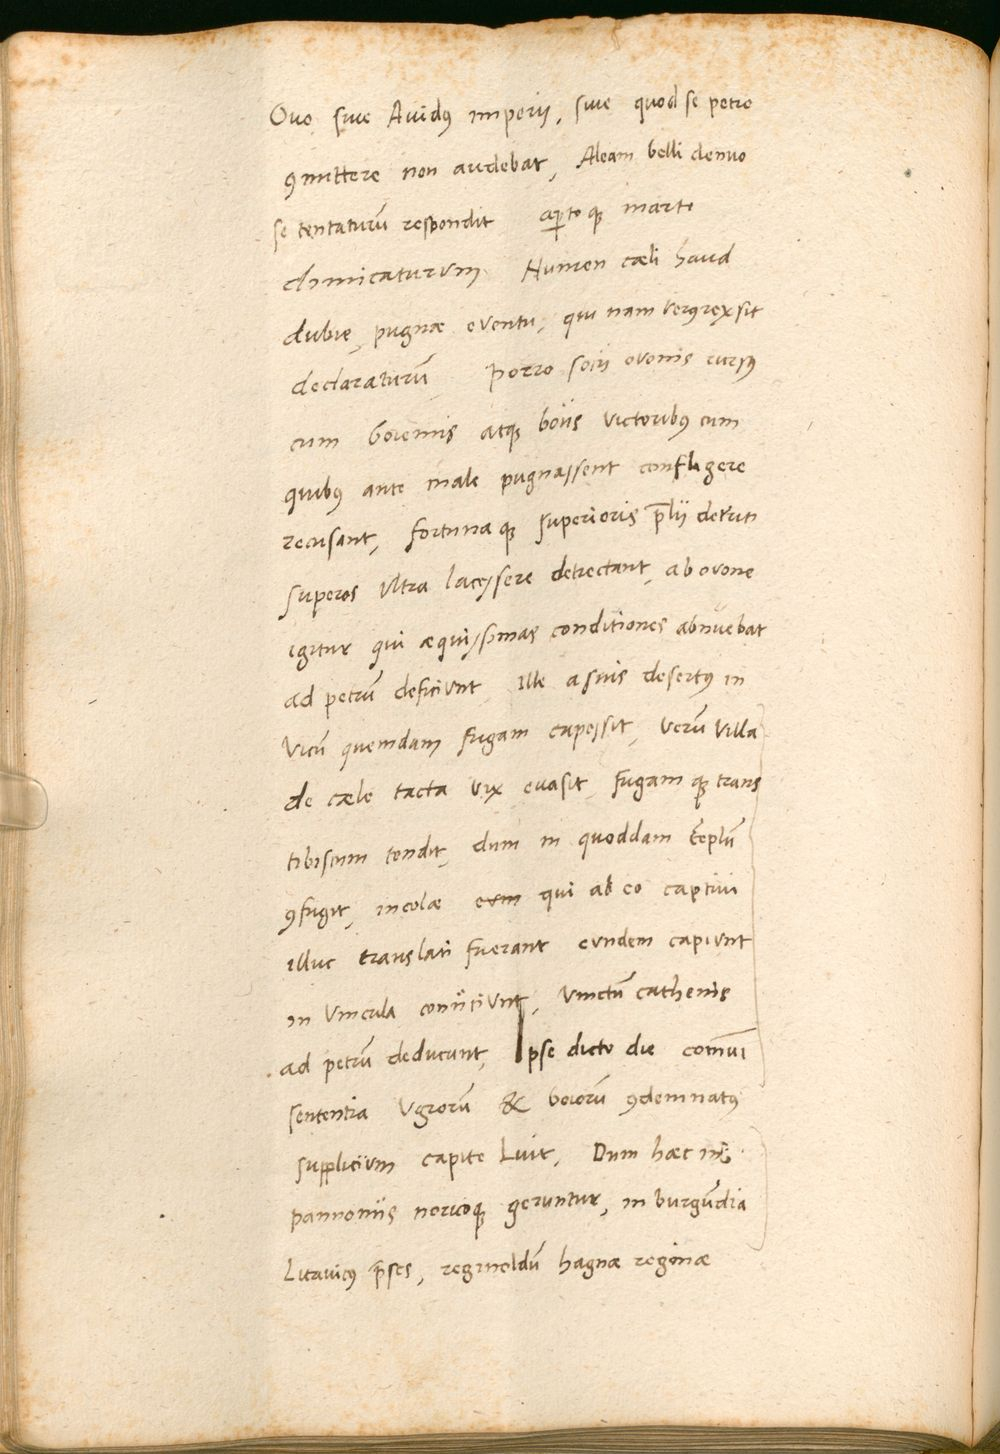 Ovo siue Auidꝰ imperij, siue quod se petro
ꝯmittere non audebat, Aleam belli denuo
se tentaturū respondit aꝑtoqꝫ marte
dimicaturum. Numen cæli haud
dubie, pugnæ eventu, qui nam verꝰ rex sit
declaraturū Porro socij ovonis rursꝰ
cum boiemis atqꝫ boiis victoribꝰ cum
quibꝰ ante male pugnassent confligere
recusant, fortunaqꝫ superioris p̄lij detriti
superos vltra lacessere detrectant, ab ovone
igitur qui æquissimas conditiones abnuebat
ad petrū deficivnt, ille a suis desertꝰ in
vicū quemdam fugam capessit, verū villa
de cælo tacta vix euasit, fugamqꝫ trans
tibiscum tendit, dum in quoddam tēplū
ꝯfugit, incolæ eum qui ab eo captiui
illuc translati fuerant evndem capivnt
in vincula coniiciunt, vinctū cathenis
ad petrū deducunt, Ipse dicto die com̄vi
sententia Vgrorū & boiorū ꝯdemnatꝰ
supplicium capite Luit, Dum hæc in
pannoniis noricoqꝫ geruntur, in burgūdia
Litauicꝰ p̄ses, reginoldū hagnæ reginæ